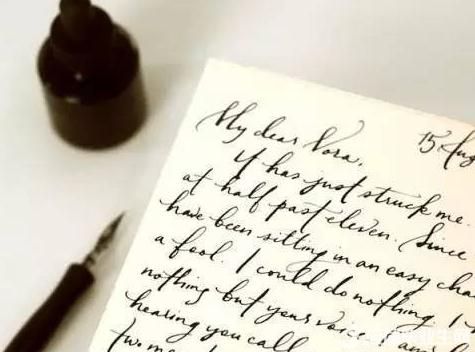 My dear Nora,
15 Aug
It has just struck me.
at half past eleven. Since
have been sitting in an easy cha
a fool. I could do nothing. I
nothing but your voice
hearing you call